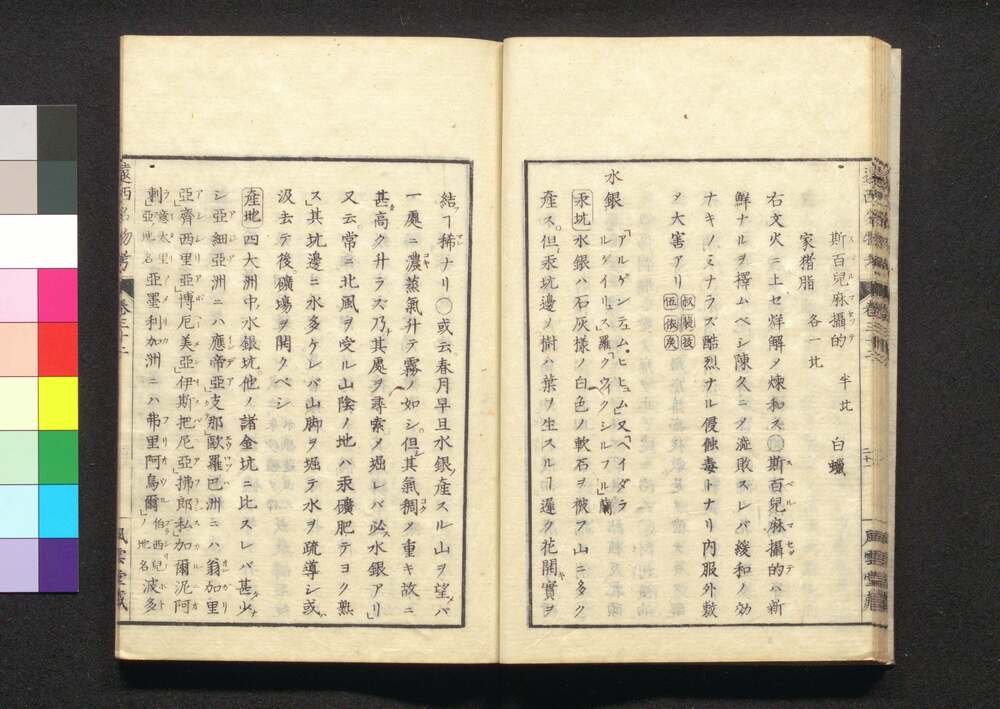 斯百児麻攝的 半比 白蠟
家猪脂 各一比
右文火ニ上セ烊解ノ煉和ス○斯百児麻攝的ハ新
鮮ナルヲ擇ムベシ陳久ニノ澁敗スレバ緩和ノ効
ナキノミナラズ酷烈ナル侵蝕毒トナリ内服外敷
ヲ大害アリ
水銀
「アルゲンテュム、ヒヒュム」又「ヘイダラ
ルゲイリュス」羅「クウィクシルフル」蘭
汞坑 水銀ハ石灰様ノ白色ノ軟石ヲ被フ山ニ多ク
産ス但汞坑邊ノ樹ハ葉ヲ生スルヿ遲ク花開實ヲ
結ヿ稀ナリ○或云春月早旦水銀ヲ産スル山ヲ望メバ
一處ニ濃蒸氣升テ霧ノ如シ但其氣稠メ重キ故ニ
甚高ク升ラズ乃其處ヲ尋索メ堀レバ必水銀アリ」
又云常ニ北風ヲ受ル山陰ノ地ハ汞礦肥テヨク熟
ス」其坑邊ニ水多ケレバ山脚ヲ堀テ水ヲ疏導シ或
汲去テ後礦場ヲ開クベシ
産地 四大洲中水銀坑他ノ諸金坑ニ比スレバ甚少
シ亞細亞洲ニハ應帝亞支那歐羅巴洲ニハ翁加里
亞齊西里亞博厄美亞伊斯把尼亞拂郎私加爾泥阿
刺亞地名 意太里ノ 亞墨利加洲ニハ弗里阿烏爾 伯西兒ノ地名 波多
遠西名物考 巻三十二
風雲堂藏